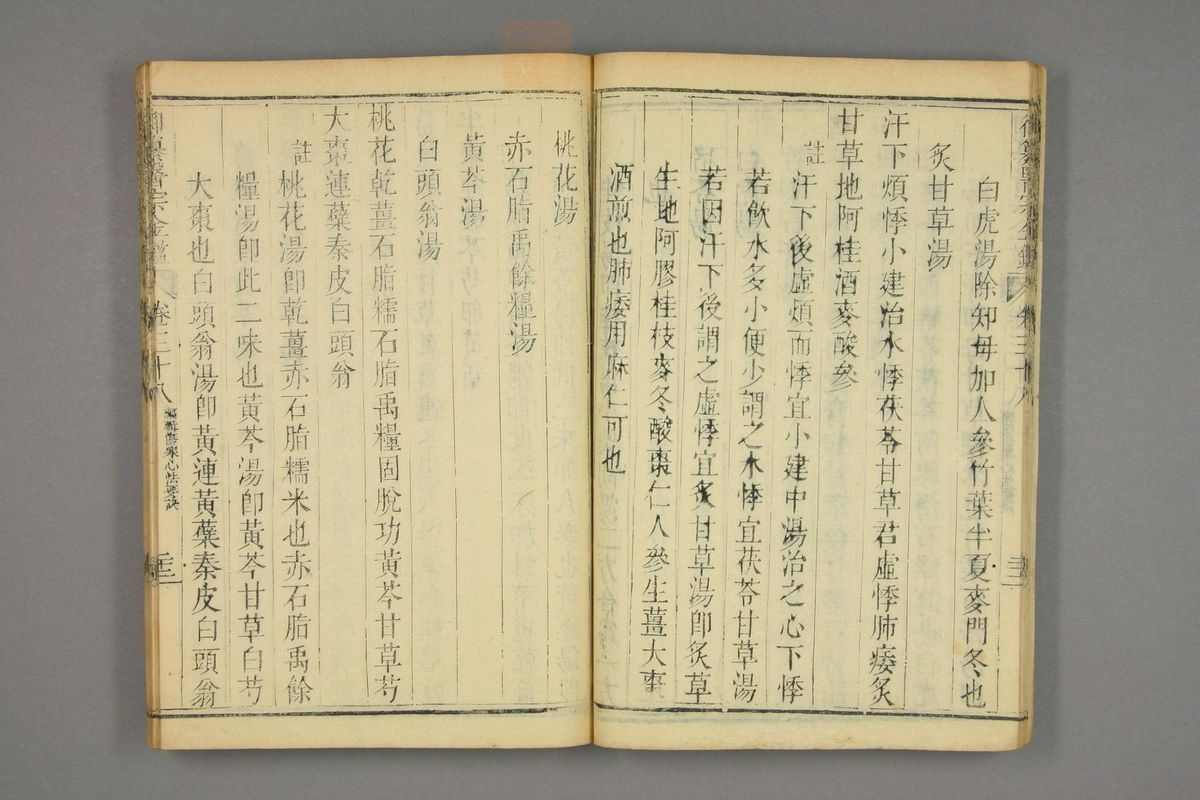 白虎湯除知母加人參竹葉半夏麥門冬也
炙甘草湯
汗下煩悸小建治水悸茯苓甘草君虛悸肺痿炙
甘草地阿桂酒麥酸參
註汗下後虛煩而悸宜小建中湯治之心下悸
若飲水多小便少謂之水悸宜茯苓甘草湯
若因汗下後謂之虛悸宜炙甘草湯卽炙草
生地阿膠桂枝麥冬酸棗仁人參生薑大棗
酒煎也肺痿用麻仁可也
桃花湯
赤石脂禹餘糧湯
黃芩湯
白頭翁湯
桃花乾薑石脂糯石脂禹糧固脫功黃芩甘草芍
大棗連蘗秦皮白頭翁
註桃花湯卽乾薑赤石脂糯米也赤石脂禹餘
糧湯卽此二味也黃芩湯卽黃芩甘草白芍
大棗也白頭翁湯卽黃連黃蘗秦皮白頭翁
御纂醫宗金鑑
卷三十八
編輯傷寒心法要訣